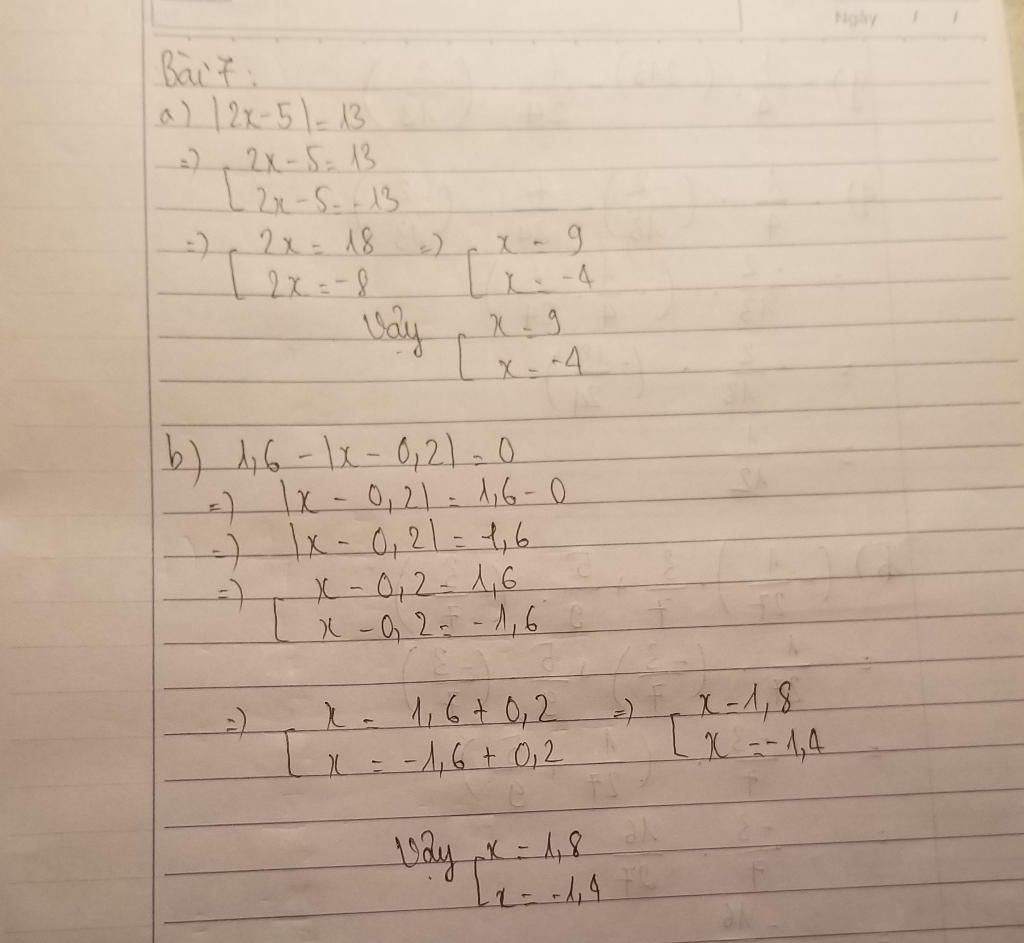 Ngày / /
Bài 7:
a) |2x-5| = 13
=> [ 2x - 5 = 13
2x - 5 = -13
=> [ 2x = 18 => [ x = 9
2x = -8 x = -4
Vậy [ x = 9
x = -4
b) 1,6 - |x - 0,2| = 0
=> |x - 0,2| = 1,6 - 0
=> |x - 0,2| = 1,6
=> [ x - 0,2 = 1,6
x - 0,2 = -1,6
=> [ x = 1,6 + 0,2 => [ x = 1,8
x = -1,6 + 0,2 x = -1,4
Vậy [ x = 1,8
x = -1,4